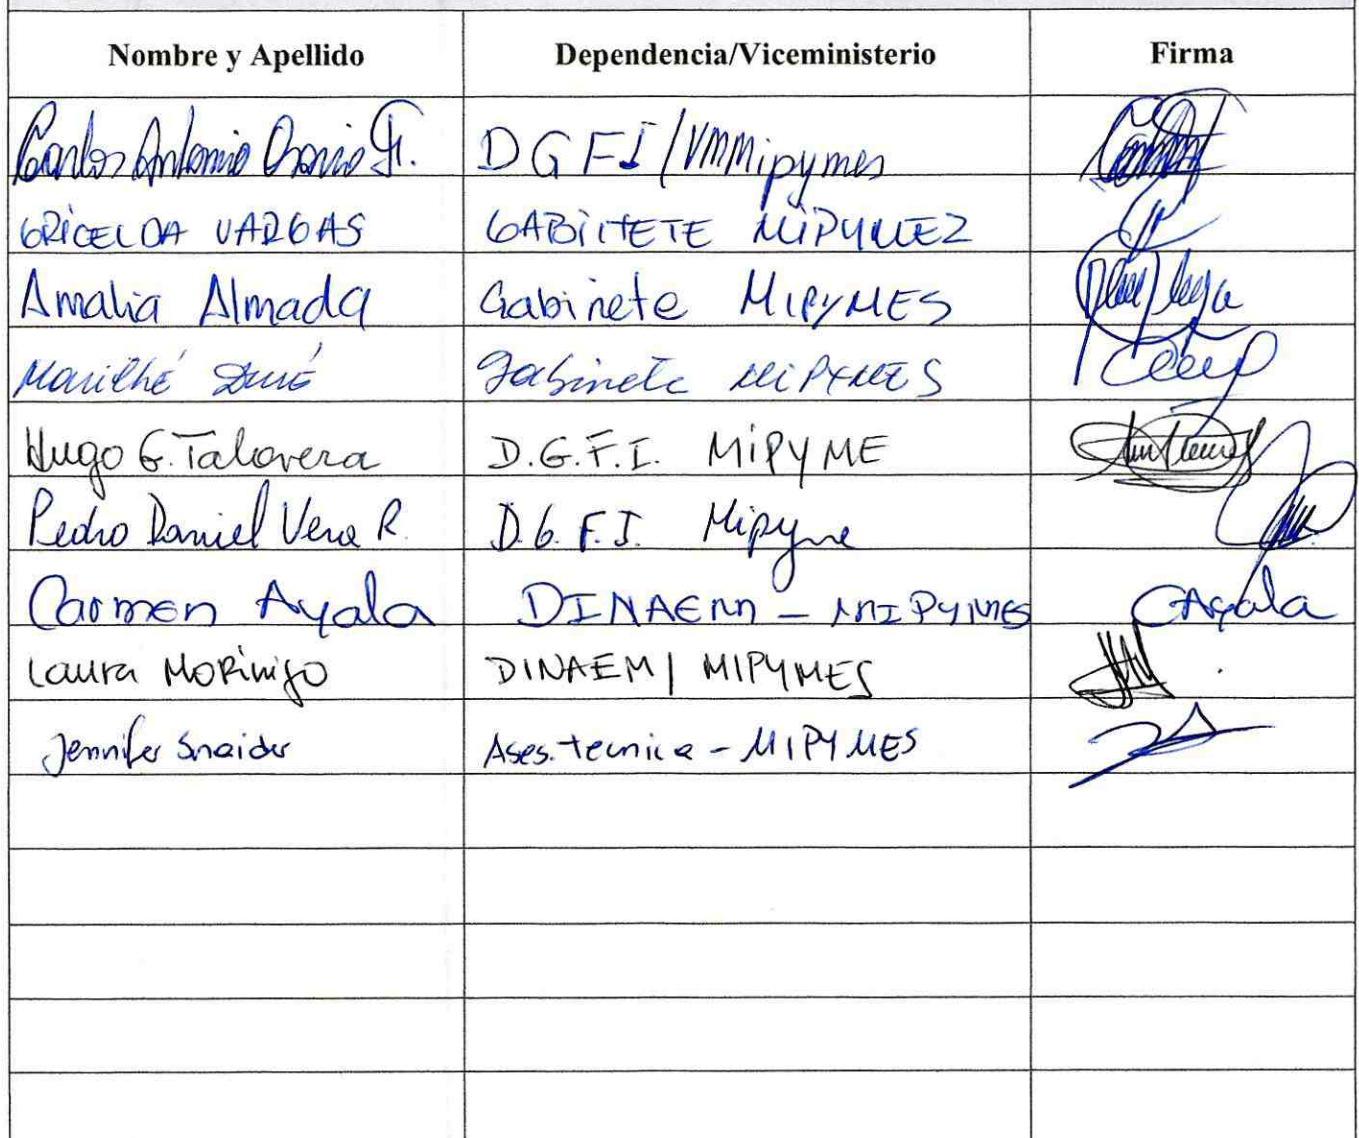 Nombre y Apellido Dependencia/Viceministerio Firma
Carlos Antonio Osorio G. DGFI/VMMipymes
GRICELDA VARGAS GABINETE MIPYMEZ
Amalia Almada Gabinete MIPYMES
Marithé Duré Gabinete MIPYMES
Hugo G. Talavera D.G.F.I. MIPYME
Pedro Daniel Vera R. D.G.F.I. Mipyme
Carmen Ayala DINAEM - MIPYMES CAyala
Laura MORinigo DINAEM/ MIPYMES
Jennifer Snaider Ases. tecnica - MIPYMES